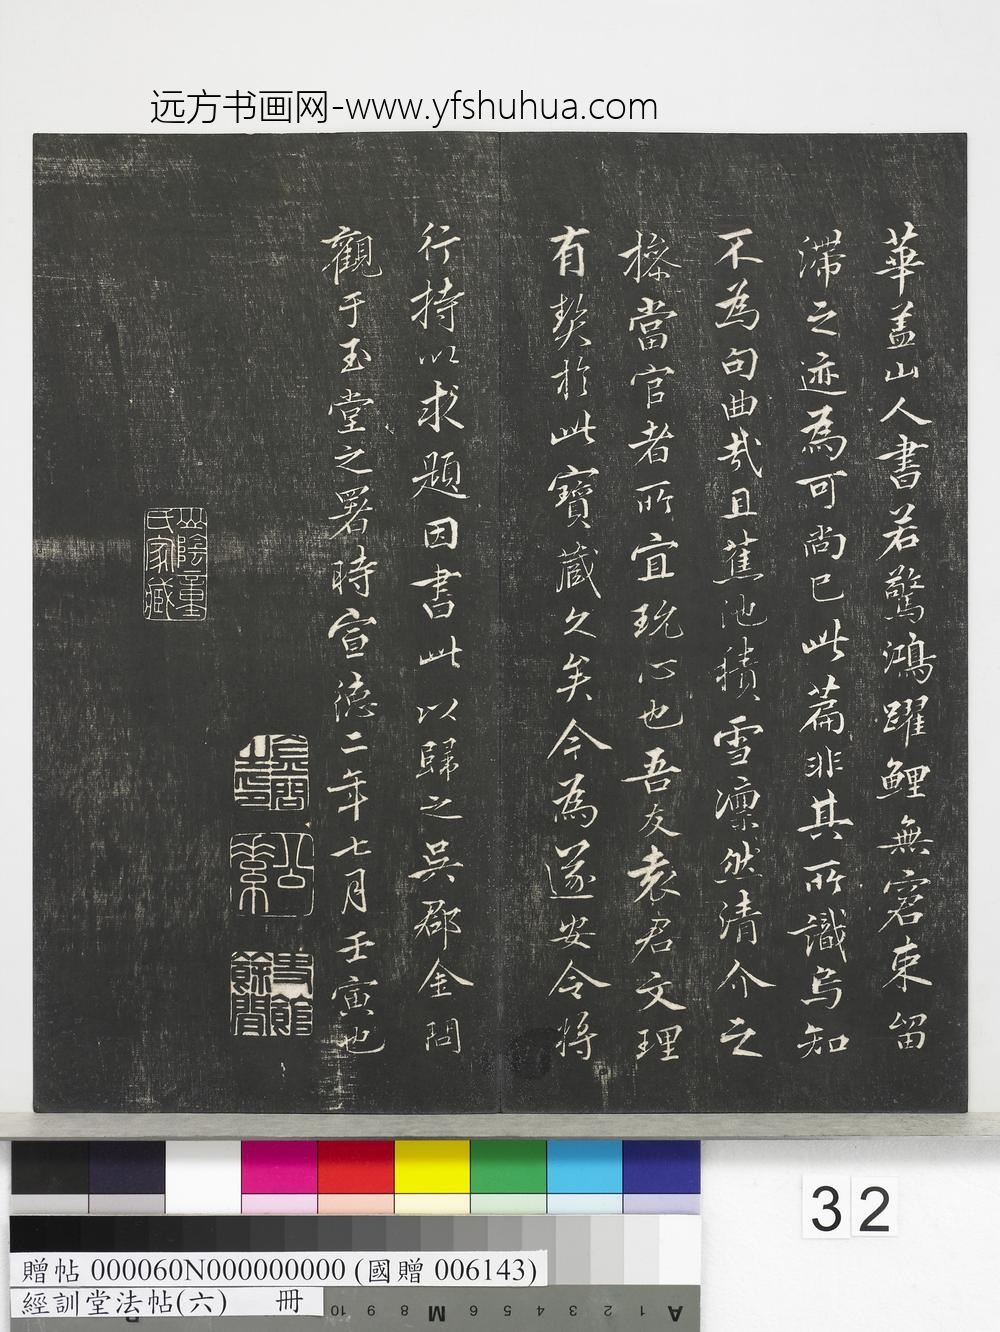 远方书画网-www.yfshuhua.com
華盖山人書若驚鴻躍鯉無窘束留
滞之迹為可尚已此篇非其所識烏知
不為句曲哉且蕉池積雪凛然清介之
操當官者所宜玩心也吾友袁君文理
有契於此寶藏久矣今為遂安令将
行持以求題因書此以歸之吳郡金問
觀于玉堂之署時宣德二年七月壬寅也
山陰童
氏家藏
公素
史館
餘閒
32
贈帖 000060N000000000 (國贈 006143)
經訓堂法帖(六) 冊
10 9 8 M 6 5 4 3 2 1 A